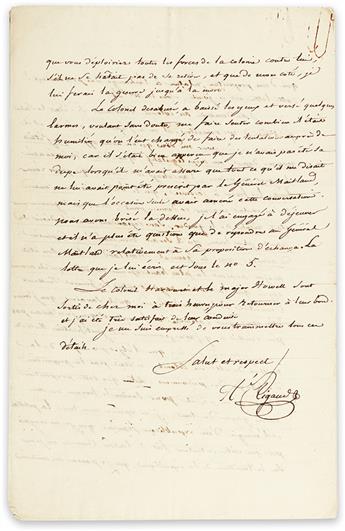 que vous déploiriez toutes les forces de la colonie contre lui
s'il ne se hatait pas de se retirer, et que de mon coté, je
lui ferai la guerre jusqu'à la mort.
Le Colonel a baissé les yeux et versé quelques
larmes, voulant sans doute me faire sentir combien il était
humilié qu'on l'eut chargé de faire des tentatives auprès de
moi, car il s'était bien apperçu que je n'avais pas été sa
dupe lorsqu'il m'avait assuré que tout ce qu'il me disait
ne lui avait point été prescrit par le Général Maitland,
mais que l'occasion seule avait amené cette conversation
nous avons brisé là dessus, je l'ai engagé à déjeuner
et il n'a plus été question que de repondre au Général
Maitland relativement à sa proposition d'échange. La
lettre que je lui écris est sous le no 5.
Le Colonel et le major Howell sont
sortis de chez moi à trois heures pour retourner à leur bord.
et j'ai été très satisfait de leur conduite.
je me suis empressé de vous transmettre tous ces
détails.
Salut et respect
Ae Rigaud